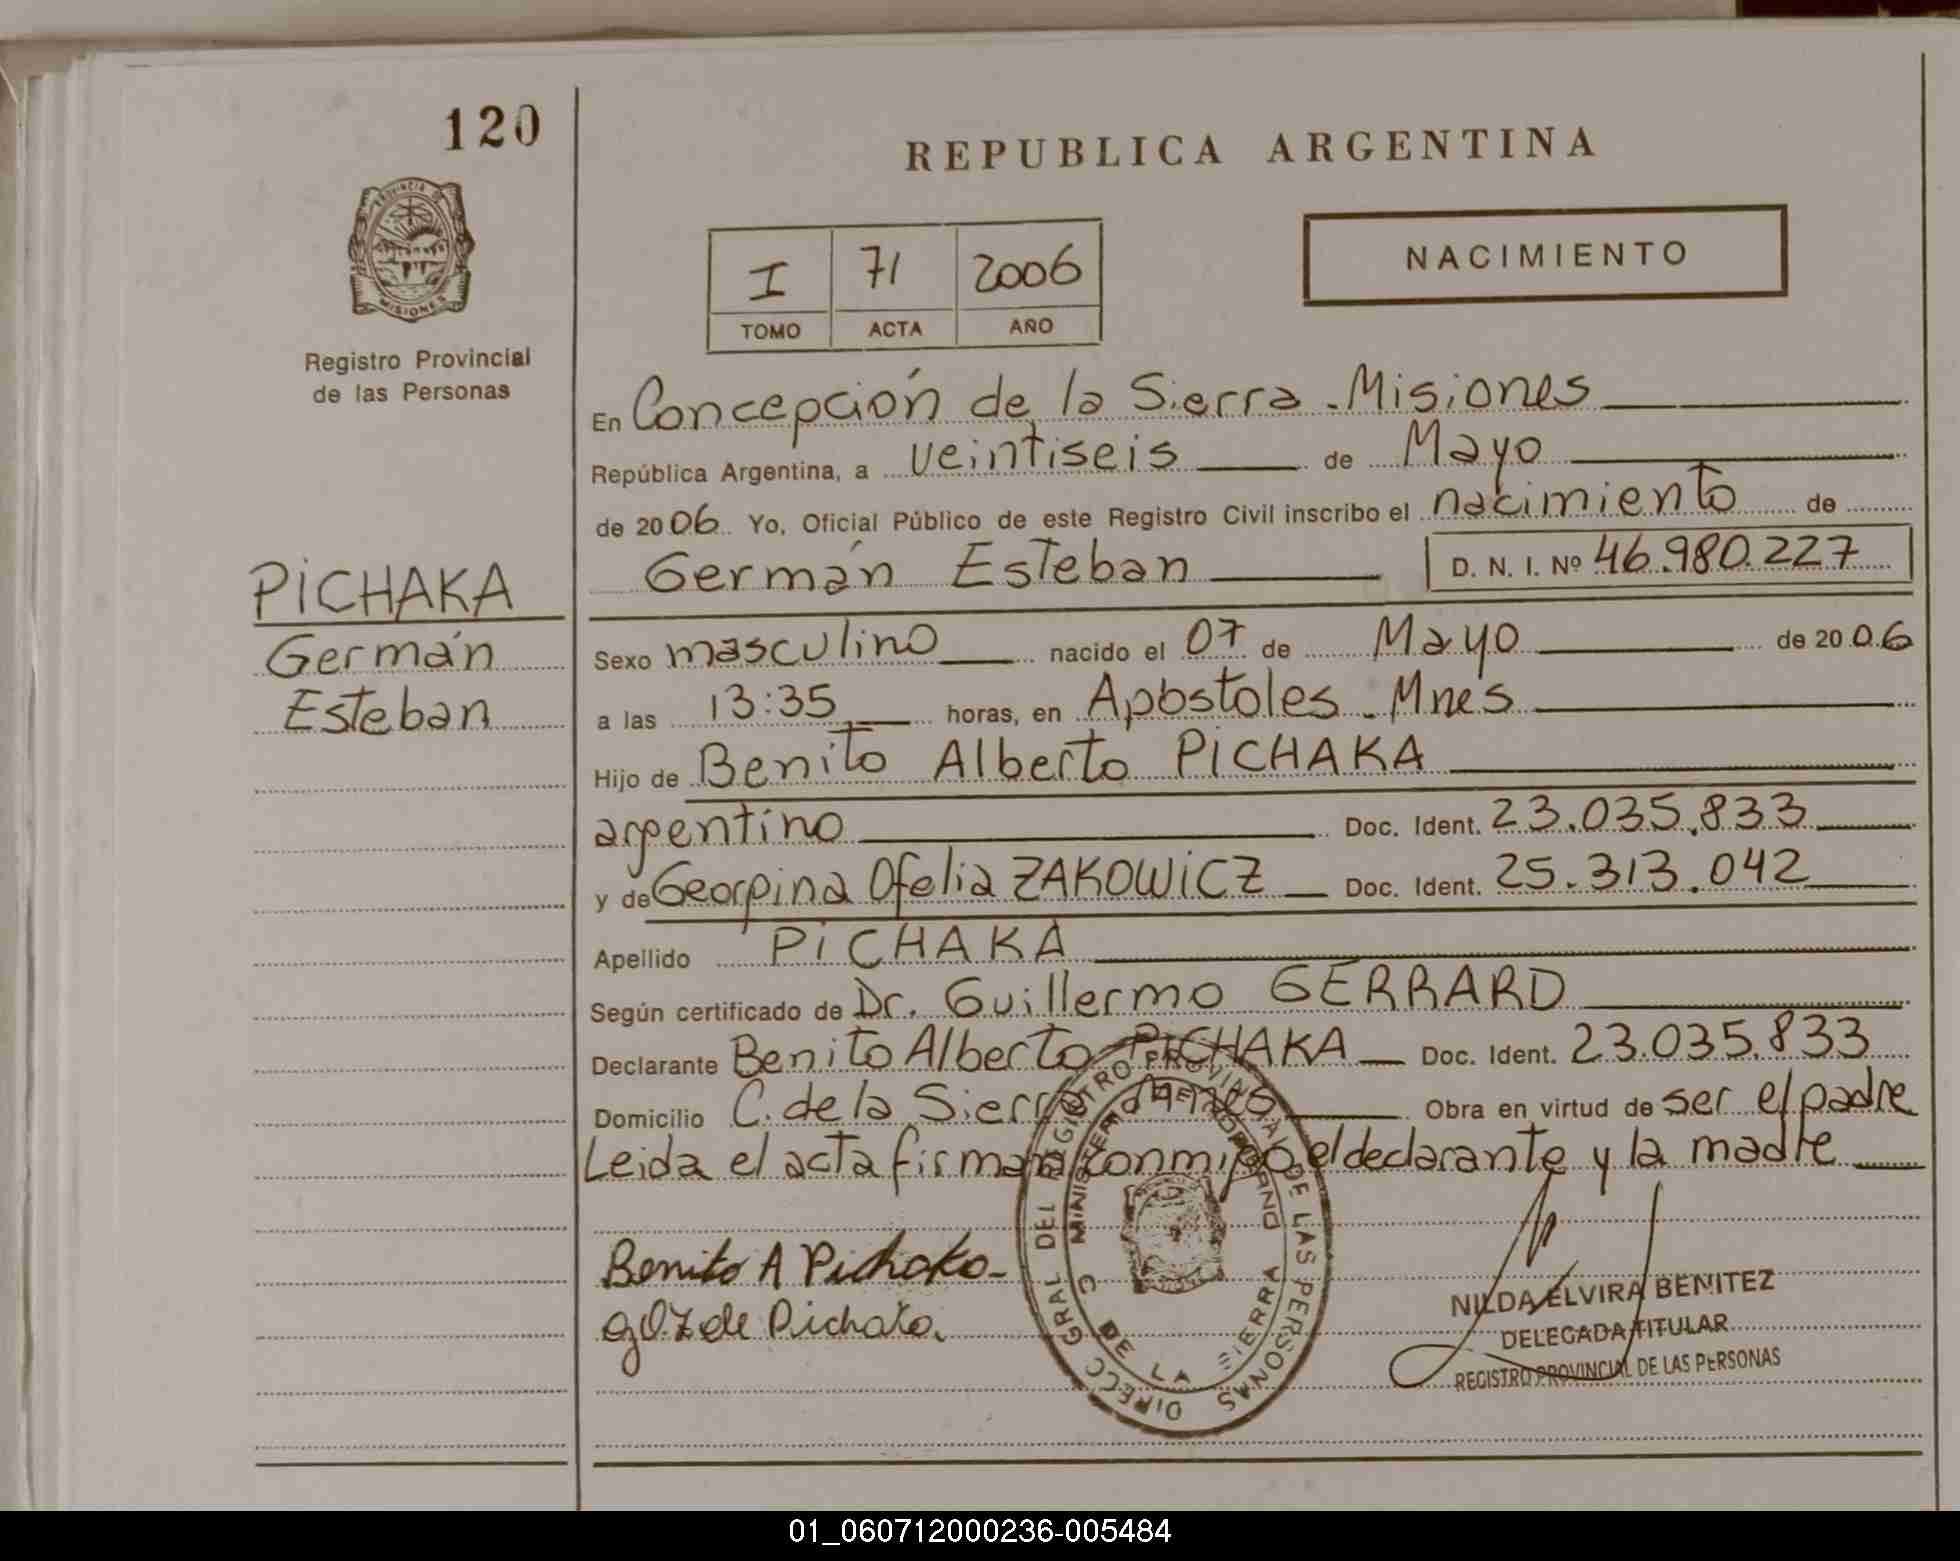 120
PROVINCIA DE
MISIONES
Registro Provincial
de las Personas
PICHAKA
Germán
Esteban
REPUBLICA ARGENTINA
I 71 2006
TOMO ACTA AÑO
NACIMIENTO
En Concepción de la Sierra - Misiones
República Argentina, a veintiseis de Mayo
de 2006 Yo, Oficial Público de este Registro Civil inscribo el nacimiento de
Germán Esteban D. N. I. Nº 46.980.227
Sexo masculino nacido el 07 de Mayo de 2006
a las 13:35 horas, en Apóstoles - Mnes
Hijo de Benito Alberto PICHAKA
argentino Doc. Ident. 23.035.833
y de Georgina Ofelia ZAKOWICZ Doc. Ident. 25.313.042
Apellido PICHAKA
Según certificado de Dr. Guillermo GERRARD
Declarante Benito Alberto PICHAKA Doc. Ident. 23.035.833
Domicilio C. de la Sierra - Mnes Obra en virtud de ser el padre
Leida el acta firman conmigo el declarante y la madre
Benito A Pichaka
GOZ de Pichaka
DIRECC GRAL DEL REGISTRO PROVINCIAL DE LAS PERSONAS
MINISTERIO DE
C DE LA SIERRA
NILDA ELVIRA BENITEZ
DELEGADA TITULAR
REGISTRO PROVINCIAL DE LAS PERSONAS
01_060712000236-005484